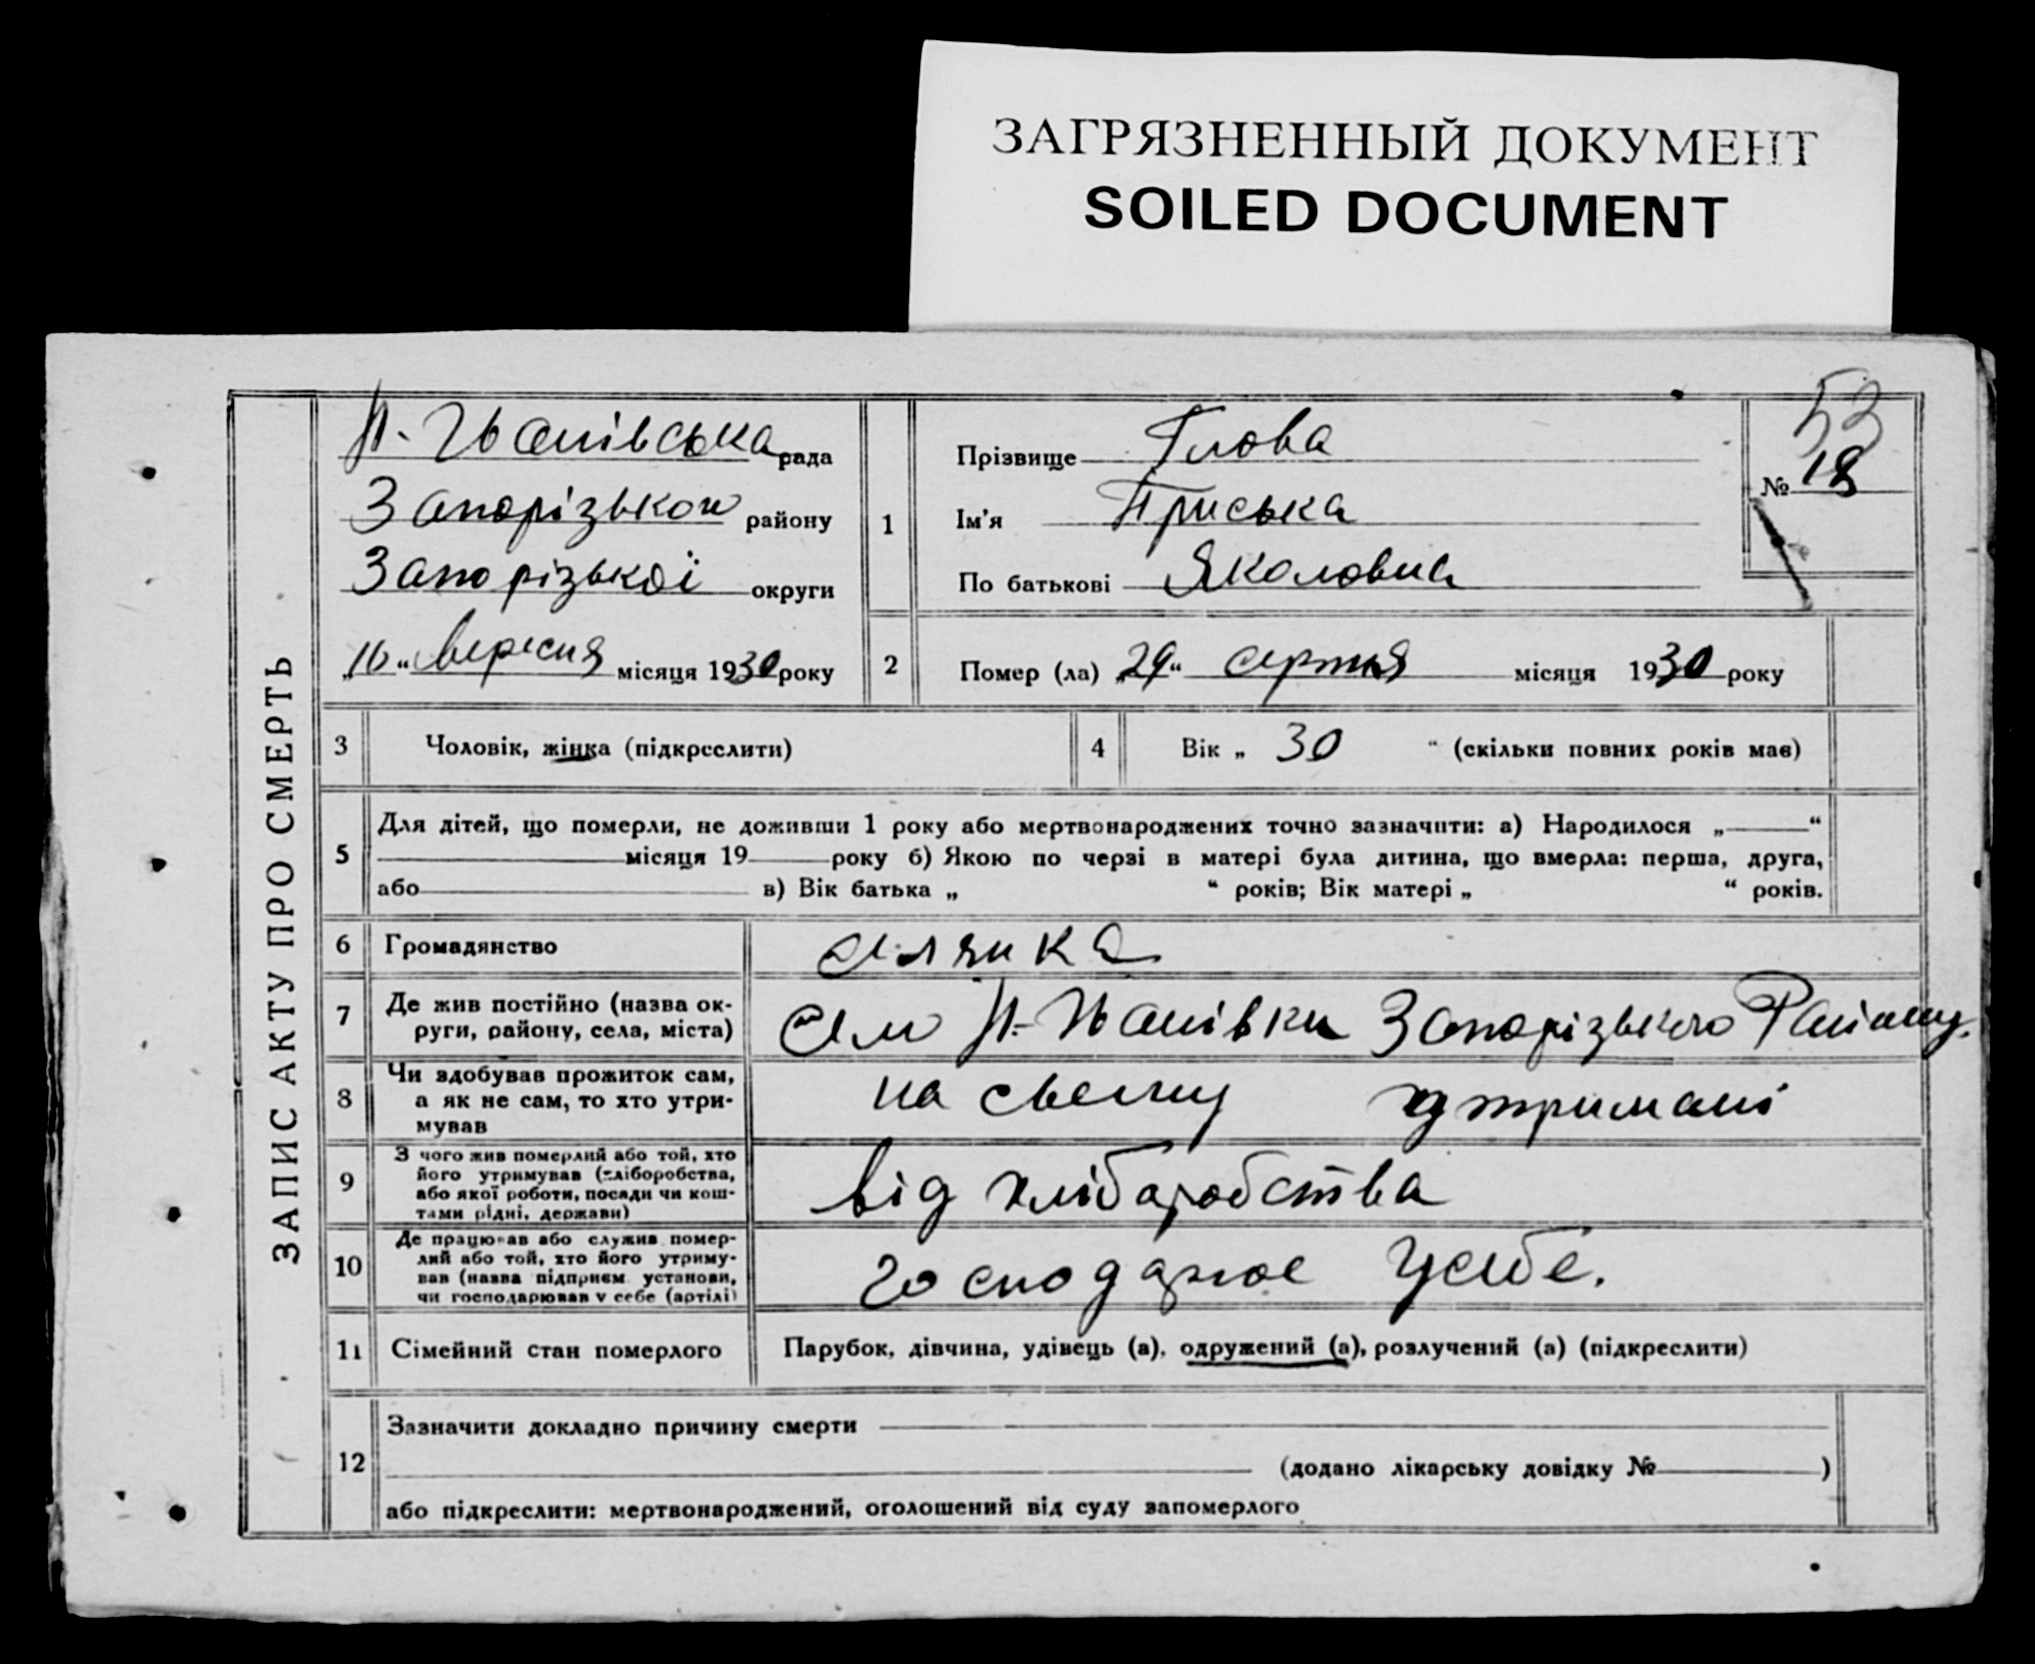 ЗАГРЯЗНЕННЫЙ ДОКУМЕНТ
SOILED DOCUMENT
ЗАПИС АКТУ ПРО СМЕРТЬ
Н.-Іванівська рада
Запорізького району
Запорізької округи
„10“ вересня місяця 1930 року
1
Прізвище Глова
Ім'я Приська
По батькові Яколовна
53
№ 18
2
Помер (ла) „29“ серпня місяця 1930 року
3 Чоловік, жінка (підкреслити)
4 Вік „ 30 “ (скільки повних років мав)
5
Для дітей, що померли, не доживши 1 року або мертвонароджених точно зазначити: а) Народилося „ “
місяця 19 року б) Якою по черзі в матері була дитина, що вмерла: перша, друга,
або в) Вік батька „ “ років; Вік матері „ “ років.
6 Громадянство
селянка
7 Де жив постійно (назва ок-
руги, району, села, міста)
село Н.-Іванівки Запорізького Району.
8 Чи здобував прожиток сам,
а як не сам, то хто утри-
мував
на своєму утримані
9 З чого жив померлий або той, хто
його утримував (хліборобства,
або якої роботи, посади чи кош-
тами рідні, держави)
від хліборобства
10 Де працював або служив помер-
лий або той, хто його утриму-
вав (назва підприєм. установи,
чи господарював у себе (артілі)
господарює усебе.
11 Сімейний стан померлого
Парубок, дівчина, удівець (а), одружений (а), розлучений (а) (підкреслити)
12
Зазначити докладно причину смерти
(додано лікарську довідку № )
або підкреслити: мертвонароджений, оголошений від суду запомерлого